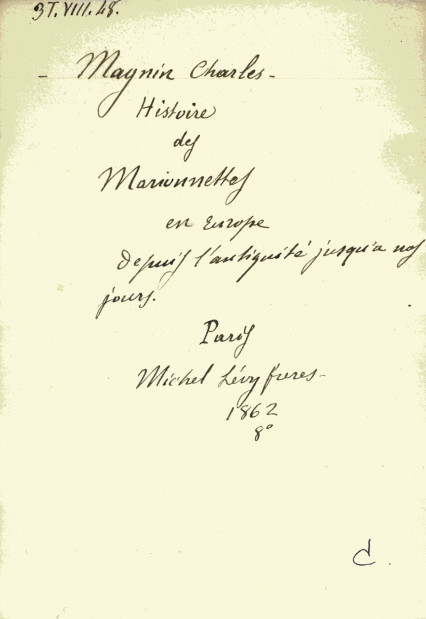 3T.VIII.48.
- Magnin Charles -
Histoire
des
Marionnettes
en Europe
depuis l'antiquité jusqu'a nos
jours.
Paris
Michel Lévy freres -
1862
8°
C.